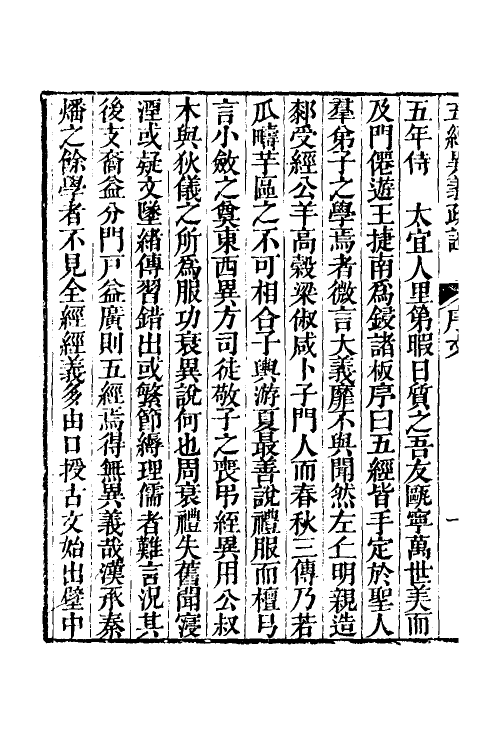 五經異義疏證 序文 一
五年侍 太宜人里第暇日質之吾友甌寧萬世美而
及門僊遊王捷南爲鋟諸板序曰五經皆手定於聖人
羣弟子之學焉者微言大義靡不與聞然左丘明親造
厀受經公羊高穀梁俶咸卜子門人而春秋三傳乃若
瓜疇芋區之不可相合子輿游夏最善說禮服而檀弓
言小斂之奠東西異方司徒敬子之喪弔絰異用公叔
木與狄儀之所爲服功衰異說何也周衰禮失舊聞寖
湮或疑文墜緒傳習錯出或繁節縟理儒者難言況其
後支裔益分門戸益廣則五經焉得無異義哉漢承秦
燔之餘學者不見全經經義多由口授古文始出壁中